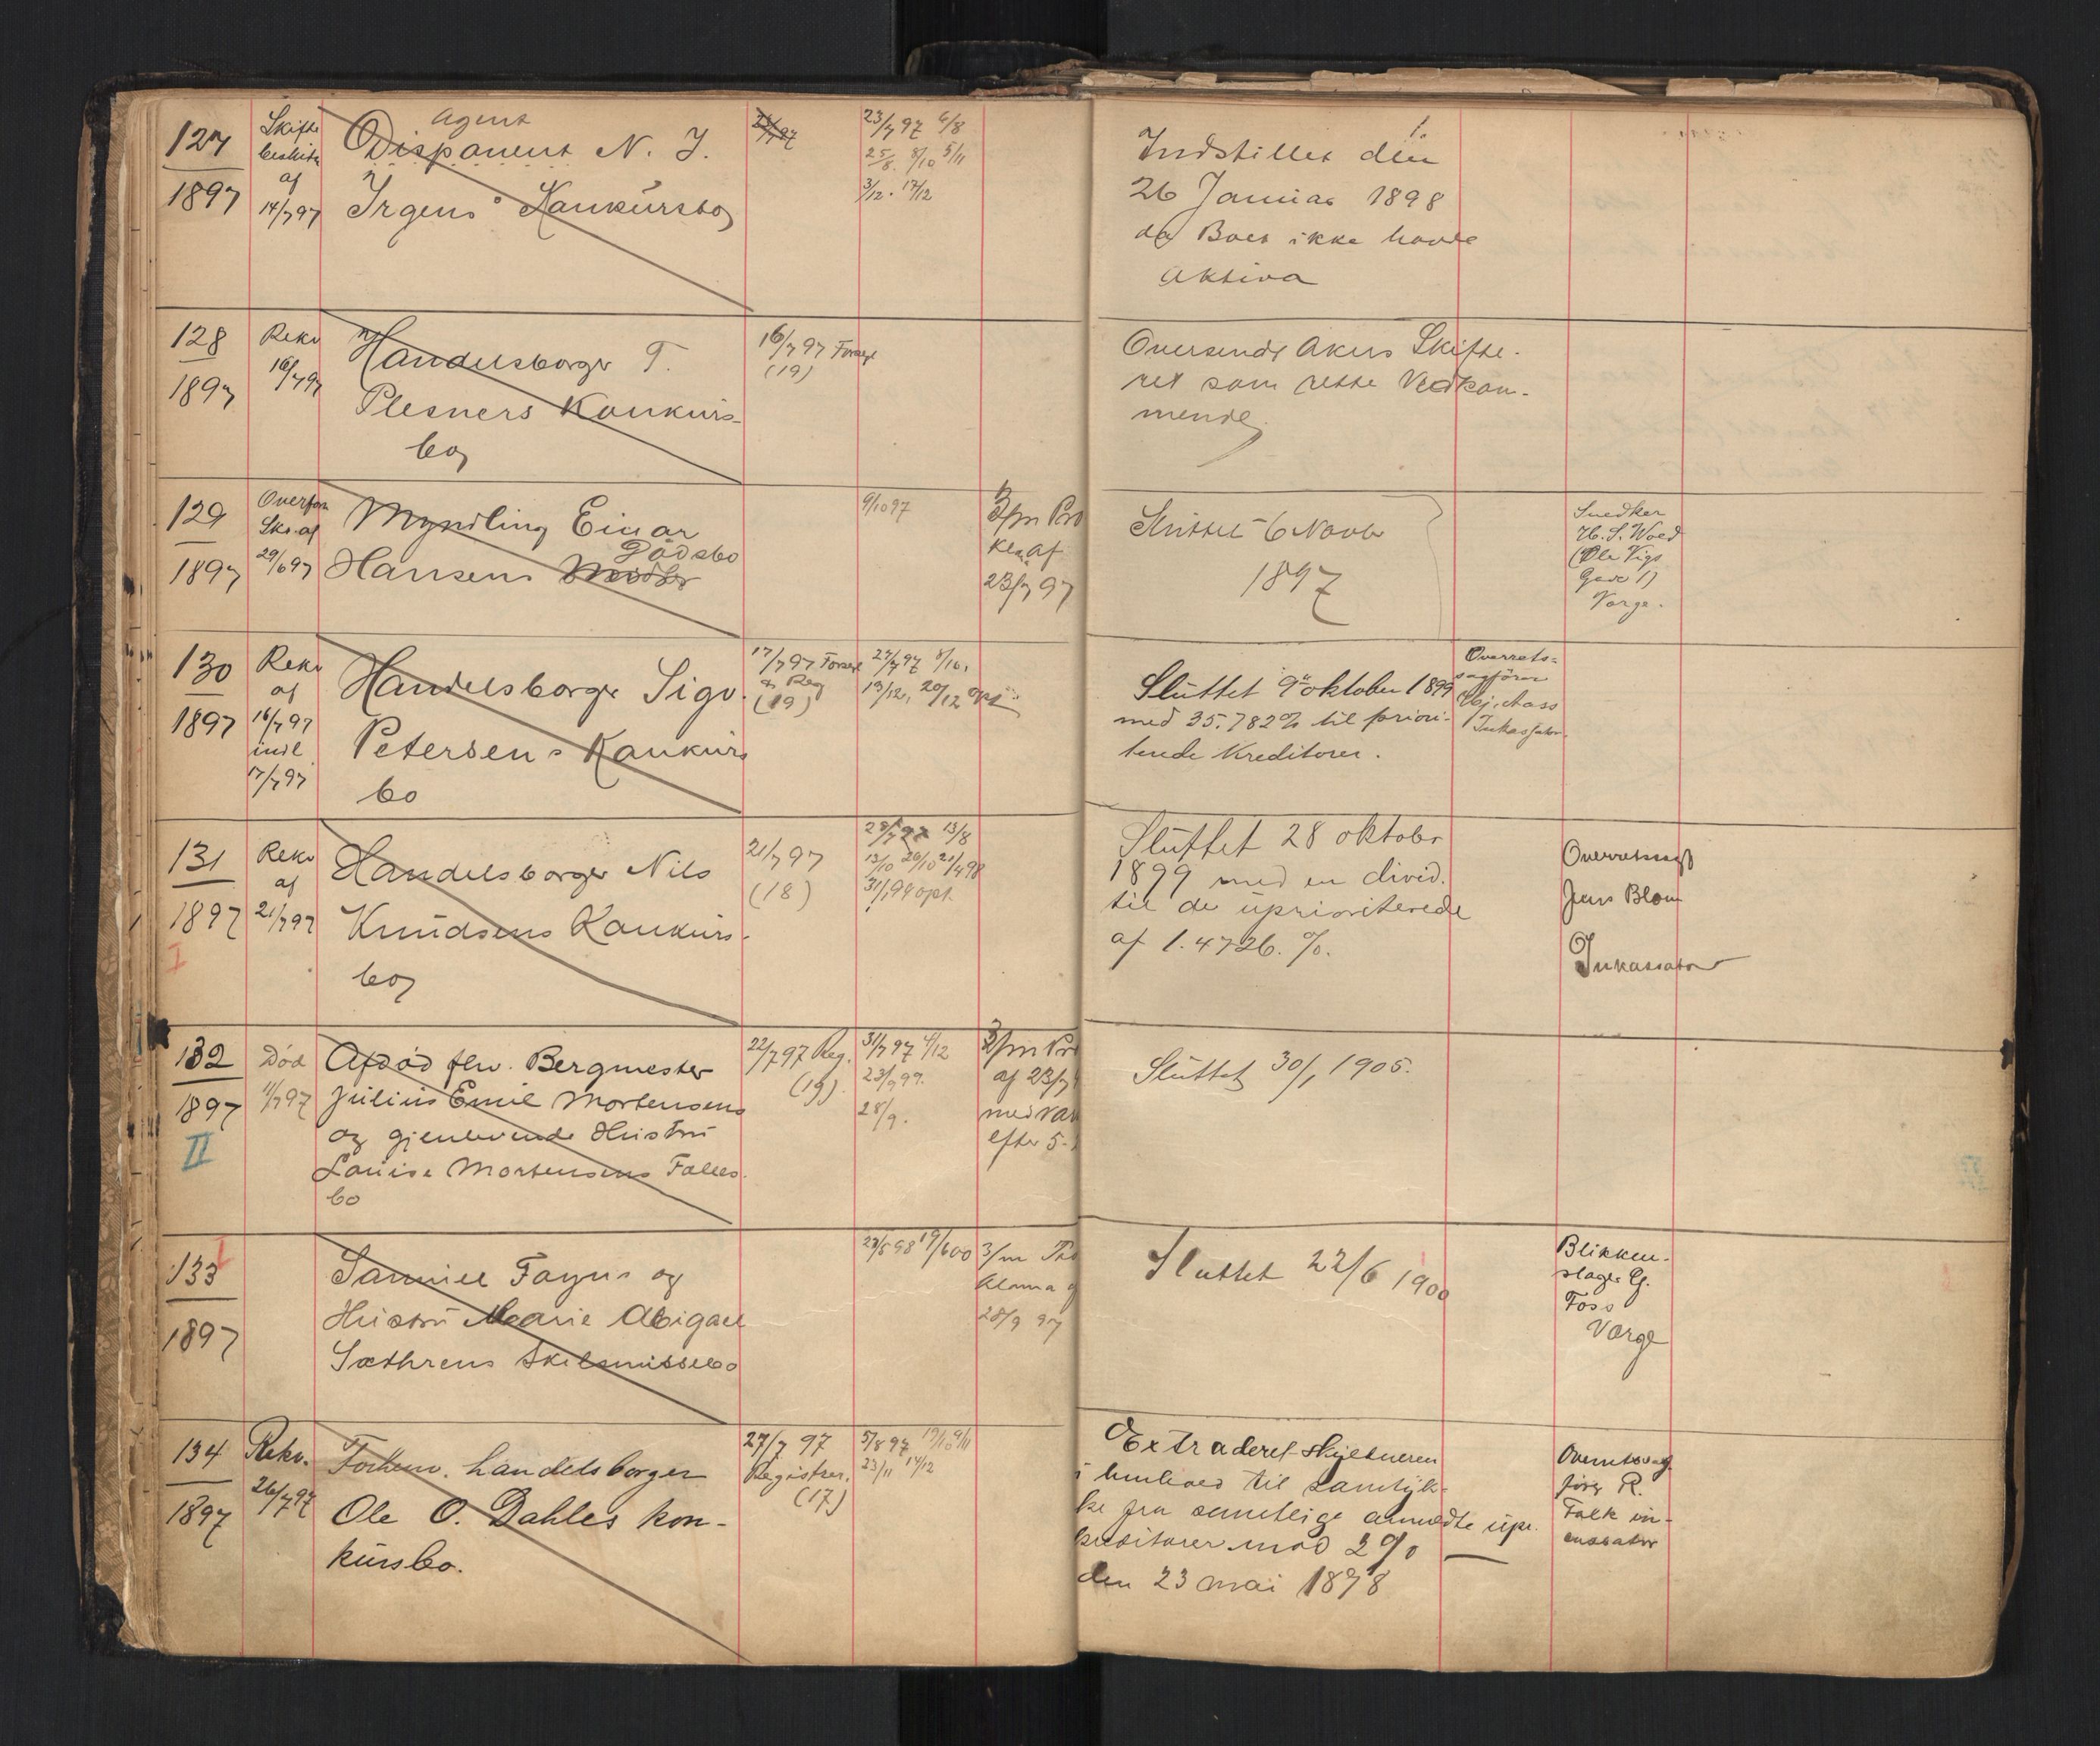 127
1897
Skifte
af
14/7 97
Agent
Disponent N. J.
Irgens' Konkursbo
23/7 97 6/8
25/8. 8/10 5/11
3/12. 17/12
Indstillet den
26 Januar 1898
da Boet ikke havde
Aktiva
128
1897
Rekv
16/7 97
Handelsborger T.
Plesners Konkurs-
bo
16/7 97 Forsegl
(19)
Oversendt Akers Skifte-
ret som rette Vedkom-
mende
129
1897
Overform
Skr. af
29/6 97
Myndling Einar
Hansens
Gods bo
9/10 97
3/m Pro
Kla af
23/7 97
Sluttet 6 Novbr
1897
Snedker
H. S. Woed
(Ole Vigs
Gade 1)
Værge.
130
1897
Rekv
af
16/7 97
indl
17/7 97
Handelsborger Sigv.
Petersens Konkurs
bo
17/7 97 Forsegl
& Reg
(19)
27/7 97 8/10,
13/12, 20/12
Sluttet 9de oktober 1899
med 35.782% til priori-
terede Kreditorer.
Overrets-
sagfører
Inkassator
131
1897
I
Rekv
af
21/7 97
Handelsborger Nils
Knudsens Konkurs-
bo
21/7 97
(18)
28/7 97 13/8
13/10 20/10 21/4 98
31/1 99 opt.
Sluttet 28 oktobr
1899 med en divid.
til de uprioriterede
af 1.4726.%.
Overretssagf
Jens Blom
Inkassator
132
1897
II
Død
11/7 97
Afdød fhv. Bergmester
Julius Emil Mortensens
og gjenlevende Hustru
Louise Mortensens Fælles-
bo
22/7 97 Reg.
(19).
31/7 97 4/12
23/9 99.
28/9.
3/m Pr
af 23/7
med var
efter 5-
Sluttet 30/1 1905.
133
1897
Samuel Fayns og
Hustru Marie Abigael
Sæthrens Skilsmissebo
23/5 98 19/6 00
3/m Pro
klama
28/9 97
Sluttet 22/6 1900
Blikken-
slager G.
Foss
Værge
134
1897
Rekv.
26/7 97
Forhenv. handelsborger
Ole O. Dahles kon-
kursbo.
27/7 97
Registrer.
(17)
5/8 97 19/10 9/11
23/11 14/12
Extraderet skyldneren
i henhold til samtyk-
ke fra samtlige anmeldte upr.
kreditorer mod 2%
den 23 mai 1898
Overretssag-
fører R.
Falk in-
cassator